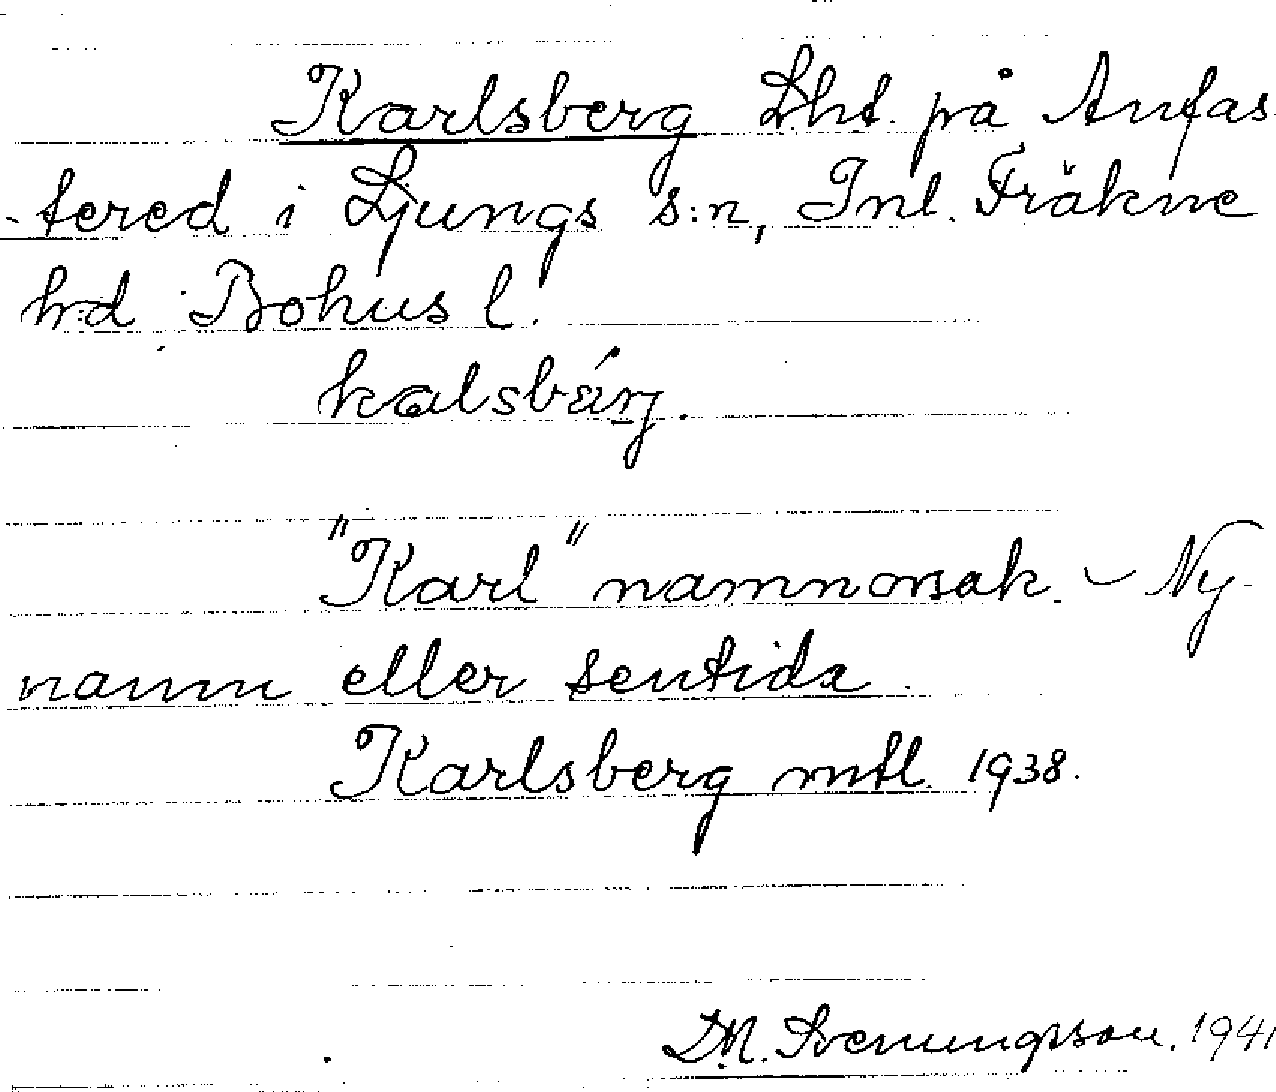 Karlsberg Lht. på Anfas-
tered i Ljungs s:n, Inl. Fräkne
hd i Bohus l.
kalsbärj.
"Karl" namnorsak. - Ny-
namn eller sentida
Karlsberg mtl. 1938.
D.N. Svenungsson. 1941